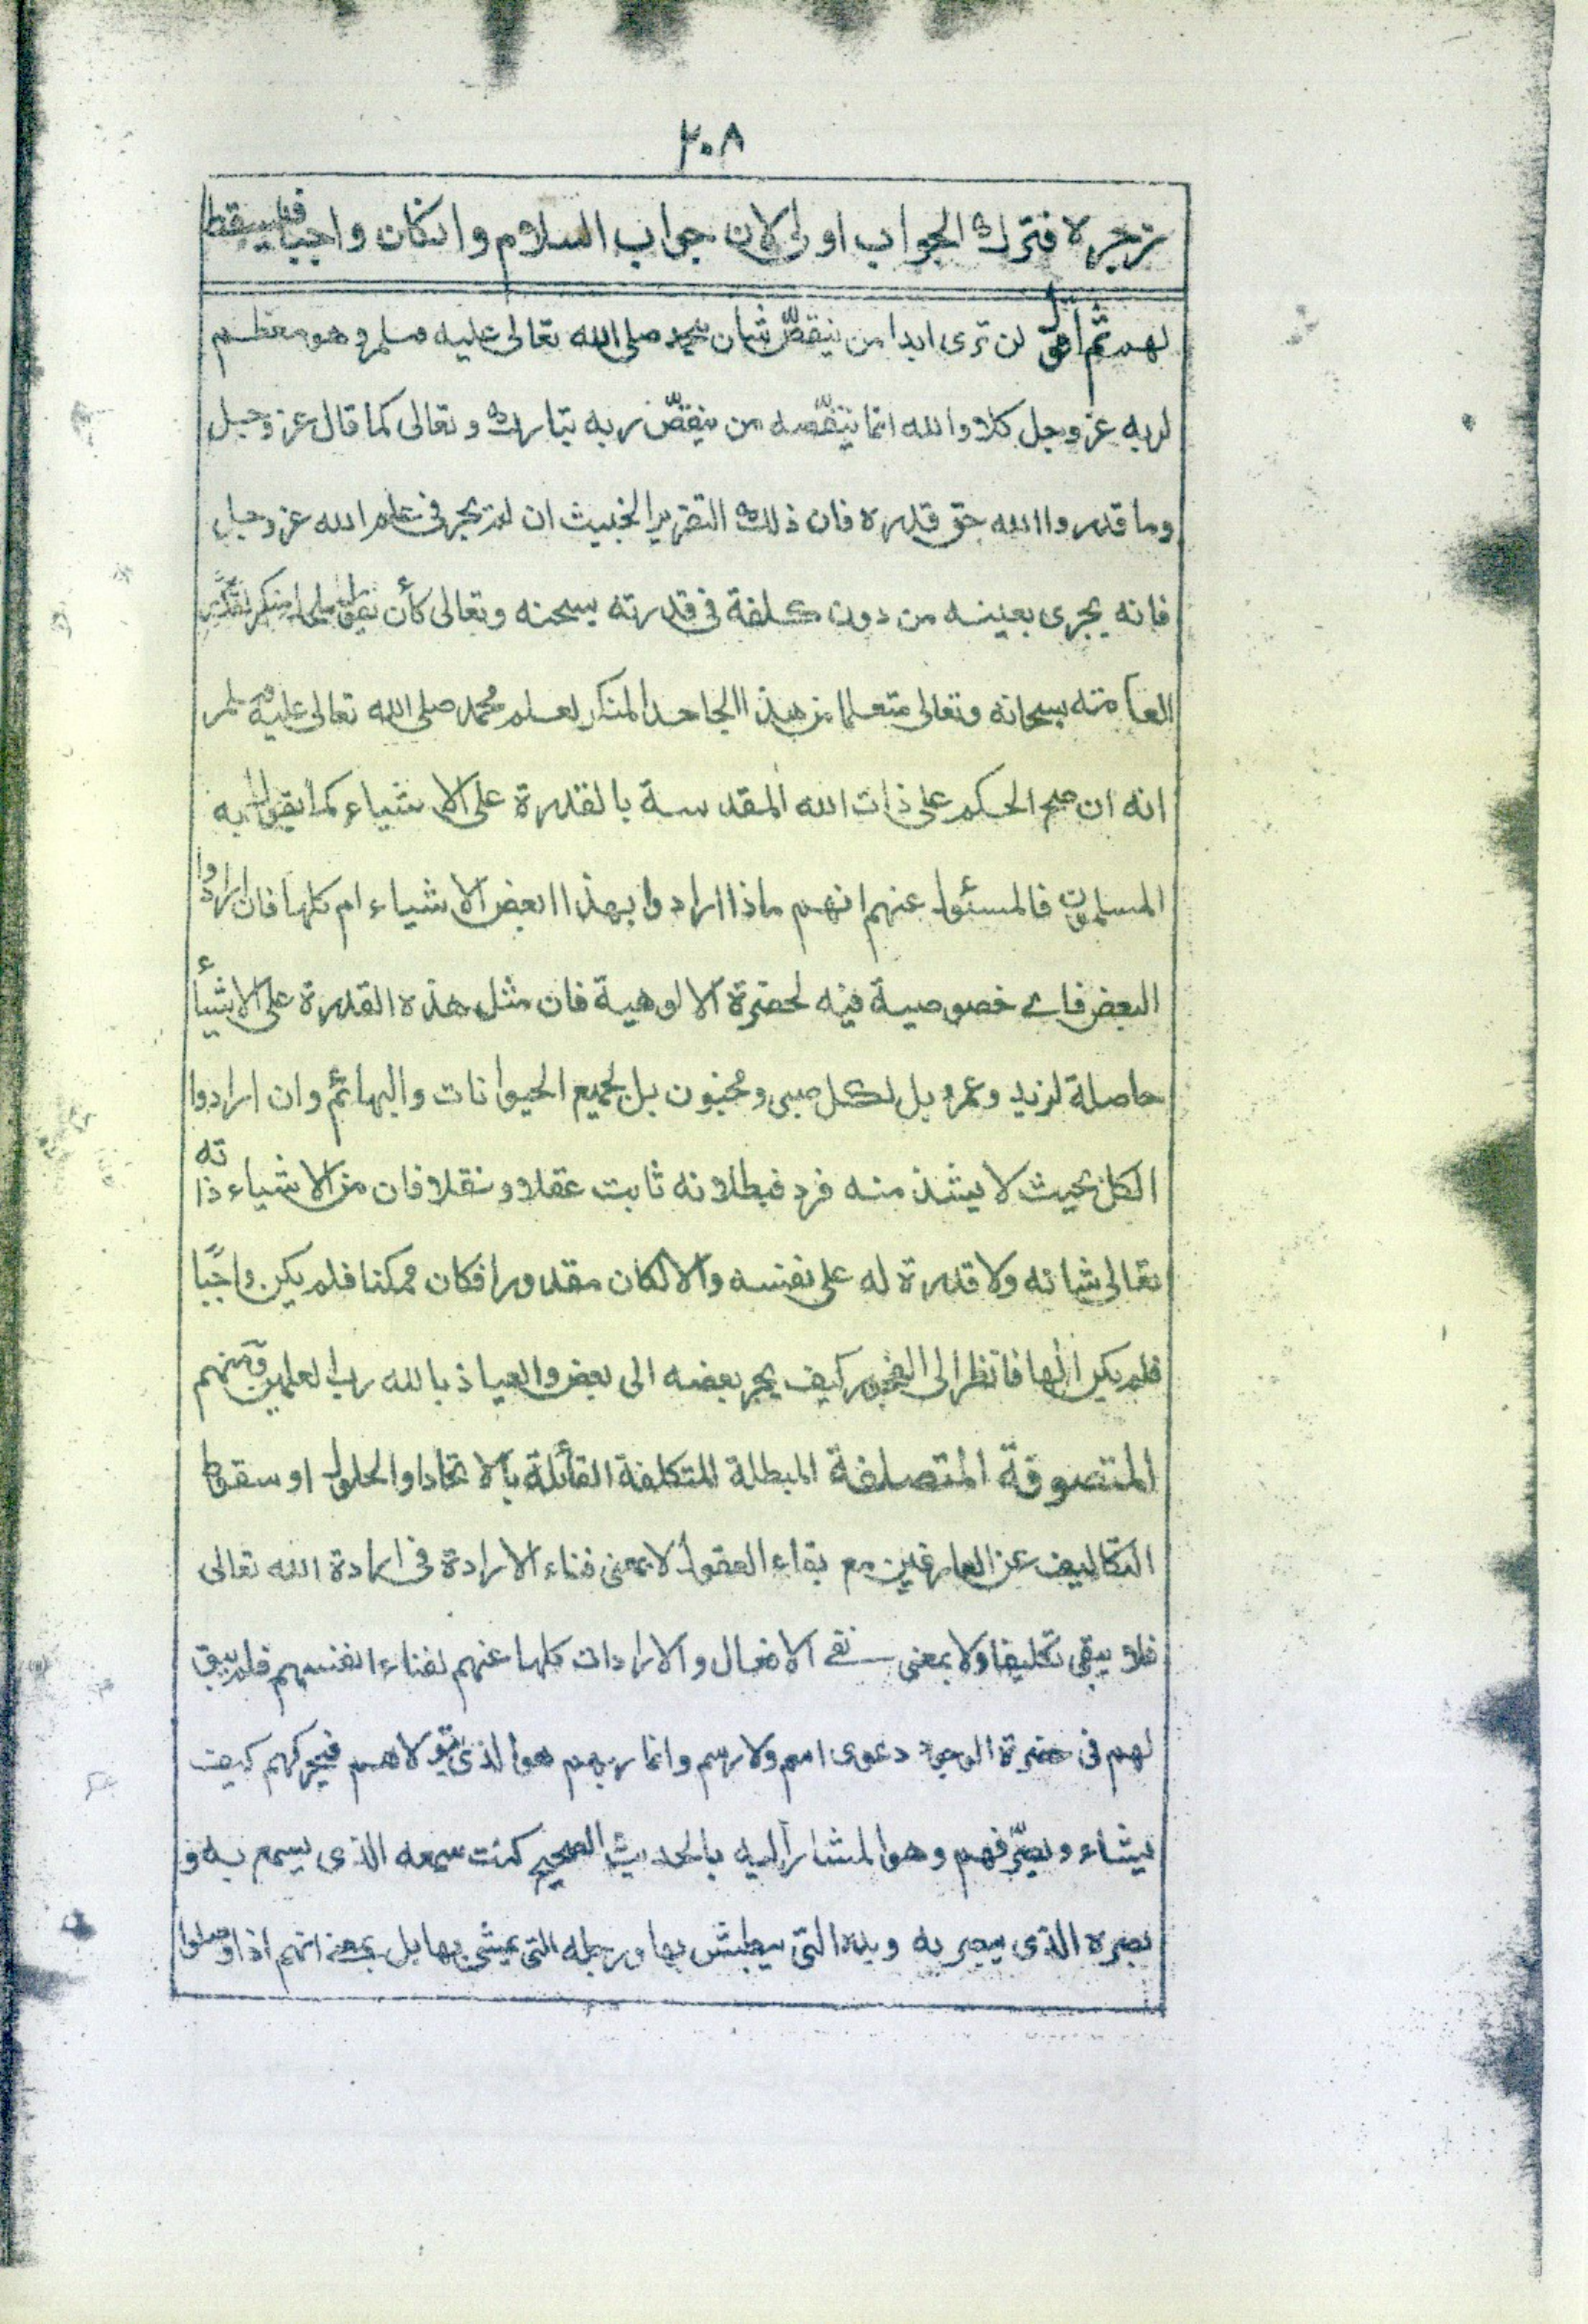 ٢٠٨
تزجره فترك الجواب اولى لان جواب السلام وانكان واجبا فيسقط
لهم ثم اقول لن ترى ابدا من ينقصّ شان محمد صلى الله تعالى عليه وسلم وهو معظم
لربه عز وجل كلا والله انما ينقّصه من ينقصّ ربه تبارك وتعالى كما قال عز وجل
وما قدروا الله حق قدره فان ذلك التقرير الخبيث ان لم يجر فى علم الله عز وجل
فانه يجرى بعينه من دون كلفة فى قدرته سبحنه وتعالى كأن يقول ملحد منكر لقدرته
العامته سبحانه وتعالى متعلما من هذا الجاحد المنكر لعلم محمد صلى الله تعالى عليه وسلم
انه ان صح الحكم على ذات الله المقدسة بالقدرة على الاشياء كما يقول به
المسلمون فالمسئول عنهم انهم ماذا ارادوا بهذا ابعض الاشياء ام كلها فان ارادوا
البعض فاے خصوصية فيه لحضرة الالوهية فان مثل هذه القدرة على الاشيأء
حاصلة لزيد وعمرو بل لكل صبى ومجنون بل لجميع الحيوانات والبهائم وان ارادوا
الكل بحيث لا يشذ منه فرد فبطلانه ثابت عقلا ونقلا فان من الاشياء ذاته
تعالى شانه ولا قدرة له على نفسه والا لكان مقدورا فكان ممكنا فلم يكن واجبًا
فلم يكن الٰها فانظر الى الفجور كيف يجر بعضه الى بعض والعياذ بالله رب العلمين ومنهم
المتصوفة المتصلفة المبطلة المتكلفة القائلة بالاتحاد او الحلول او سقوط
التكاليف عن العارفين مع بقاء العقول لا بمعنى فناء الارادة فى ارادة الله تعالى
فلا يبقى تكليفا ولا بمعنى نفے الافعال والارادات كلها عنهم لفناء انفسهم فلم يبق
لهم فى حضرة الوجود دعوى اسم ولا رسم وانما ربهم هو الذى يتولاهم فيحركهم كيف
يشاء ويصرّفهم وهو المشار اليه بالحديث الصحيح كنت سمعه الذى يسمع به و
بصره الذى يبصر به ويده التى يبطش بها ورجله التى يمشى بها بل بمعنى انهم اذا وصلوا